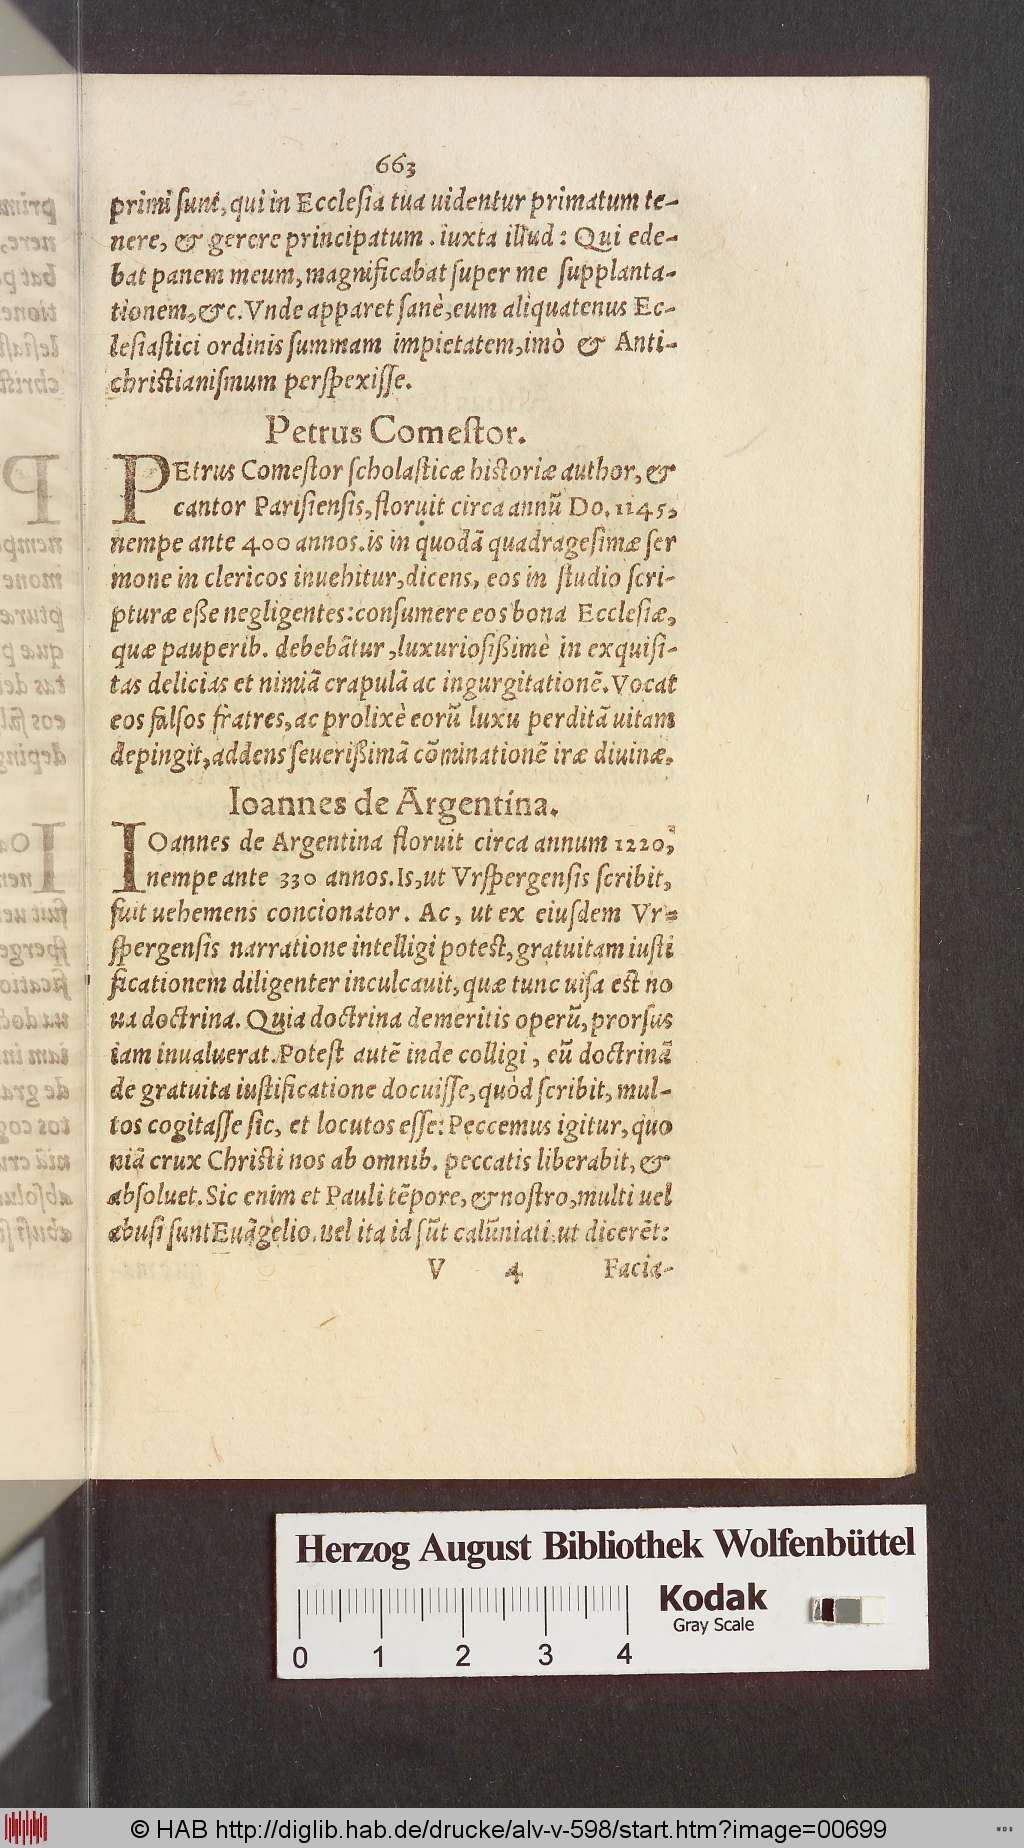 663
primi ſunt, qui in Eccleſia tua uidentur primatum te-
nere, & gerere principatum. iuxta illud: Qui ede-
bat panem meum, magnificabat ſuper me ſupplanta-
tionem, &c. Vnde apparet ſanè, eum aliquatenus Ec-
leſiaſtici ordinis ſummam impietatem, imò & Anti-
chriſtianiſmum perſpexiſſe.
Petrus Comeſtor.
PEtrus Comeſtor ſcholaſticæ hiſtoriæ author, &
cantor Pariſienſis, floruit circa annũ Do. 1145,
nempe ante 400 annos. is in quodã quadrageſimæ ſer
mone in clericos inuehitur, dicens, eos in ſtudio ſcri-
pturæ eße negligentes: conſumere eos bona Eccleſiæ,
quæ pauperib. debebãtur, luxurioſißimè in exquiſi-
tas delicias et nimiã crapulã ac ingurgitationẽ. Vocat
eos falſos fratres, ac prolixè eorũ luxu perditã uitam
depingit, addens ſeuerißimã cõminationẽ iræ diuinæ.
Ioannes de Argentina.
IOannes de Argentina floruit circa annum 1220,
nempe ante 330 annos. Is, ut Vrſpergenſis ſcribit,
fuit uehemens concionator. Ac, ut ex eiuſdem Vr-
ſpergenſis narratione intelligi poteſt, gratuitam iuſti
ficationem diligenter inculcauit, quæ tunc uiſa eſt no
ua doctrina. Quia doctrina de meritis operũ, prorſus
iam inualuerat. Poteſt autẽ inde colligi, eũ doctrinã
de gratuita iuſtificatione docuiſſe, quòd ſcribit, mul-
tos cogitaſſe ſic, et locutos eſſe: Peccemus igitur, quo
niã crux Chriſti nos ab omnib. peccatis liberabit, &
abſoluet. Sic enim et Pauli tẽpore, & noſtro, multi uel
abuſi ſunt Euãgelio. uel ita id ſũt calũniati. ut dicerẽt:
V 4 Facia-
Herzog August Bibliothek Wolfenbüttel
Kodak
Gray Scale
0 1 2 3 4
© HAB http://diglib.hab.de/drucke/alv-v-598/start.htm?image=00699